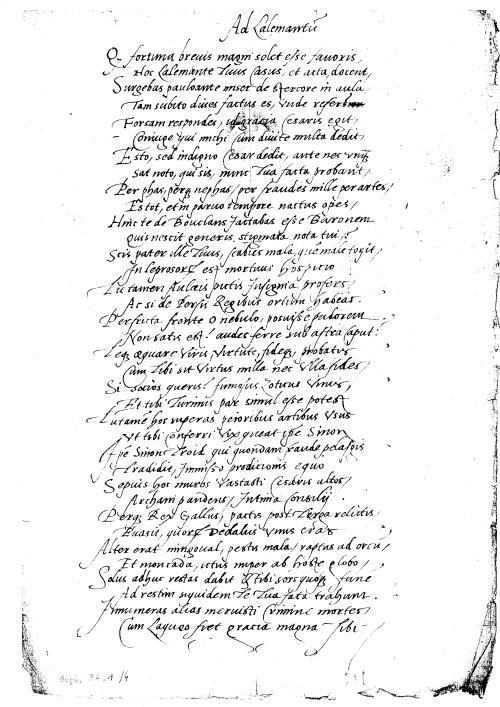 Ad Lalemantũ
Qz fortuna brevis magni solet esse favoris,
Hoc Lalemante tuus casus, et acta docent,
Surgebas pauloante miser de stercore in aula
Tam subito dives factus es, unde refert
Forsam respondes, id gracia Cesaris egit,
Coniuge qui michi cum divite multa dedit,
Esto, sed indigno Cesar dedit, ante nec unq̃
Sat noto, qui sis, nunc tua fata probant,
Per phas, perq nephas, per fraudes mille per artes,
Es tot, et in parvo tempore nactus opes,
Hinc te de Bouclans Jactabas esse Baronem
Quis nescit generis stigmata nota tui?
Scis pater ille tuus, scabies mala, quē male torsit,
In leprosorz est mortuus hospicio
Tu tamen Aulæis putis Insignia profers,
Ac si de Persis Regibus ortum habeas.
Perfricta fronte o nebulo, posuisse pudorem
Non satis est? audes ferre sub astra caput?
Teq æquare viris virtute, fideq probatis
Cum tibi sit virtus nulla nec ulla fides,
Si socios queris?
Et tibi Turinus par simul esse potest
Tu tamē hos superas peioribus artibus usus
Ut tibi conferri vix queat ipse Sinon
Ipse Sinon Troiā qui quondam fraude pelasgis
Tradidit, Immisso prodicionis equo
Sepius hoc muros vastasti Cesaris altos,
Archam pandens, Intima consilij.
Perq Rex Gallus, pactus post terga relictis,
Evasit, quorz Dedalus unus eras
Alter erat mingoual, pestis mala, raptus ad orcū,
Et moncada, ictus nuper ab hoste globo,
Solus adhuc restas dabit & tibi sors quoq fune
Ad restim siquidem Te tua fata trahunt.
Innumeras alias meruisti crimine mortes,
Cum Laqueo fiet gracia magna tibi